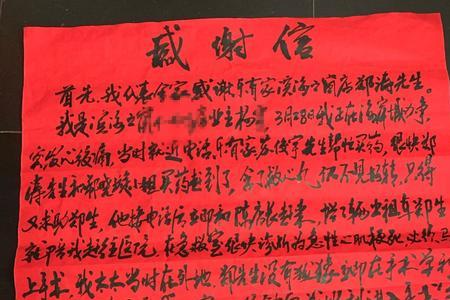 感谢信
首先,我代表全家感谢乐有家滨海之窗店郑涛先生。
我是滨海之窗 业主杨 3月28日我正在海滨城办事,
突发心绞痛,当时就近电话,乐有家苏俊宇先生帮忙买药,很快郑
涛先生和郭晓 小姐买药赶到了,含了救心丸,仍不见好转,只得
又求助郑生,他接电话后立即和陈店长赶来,搭了辆出租车郑生
我赶往医院,在急救室很快诊断为急性心肌梗死,必须马
上手术。我太太当时在外地,郑先生没有犹豫立即在手术